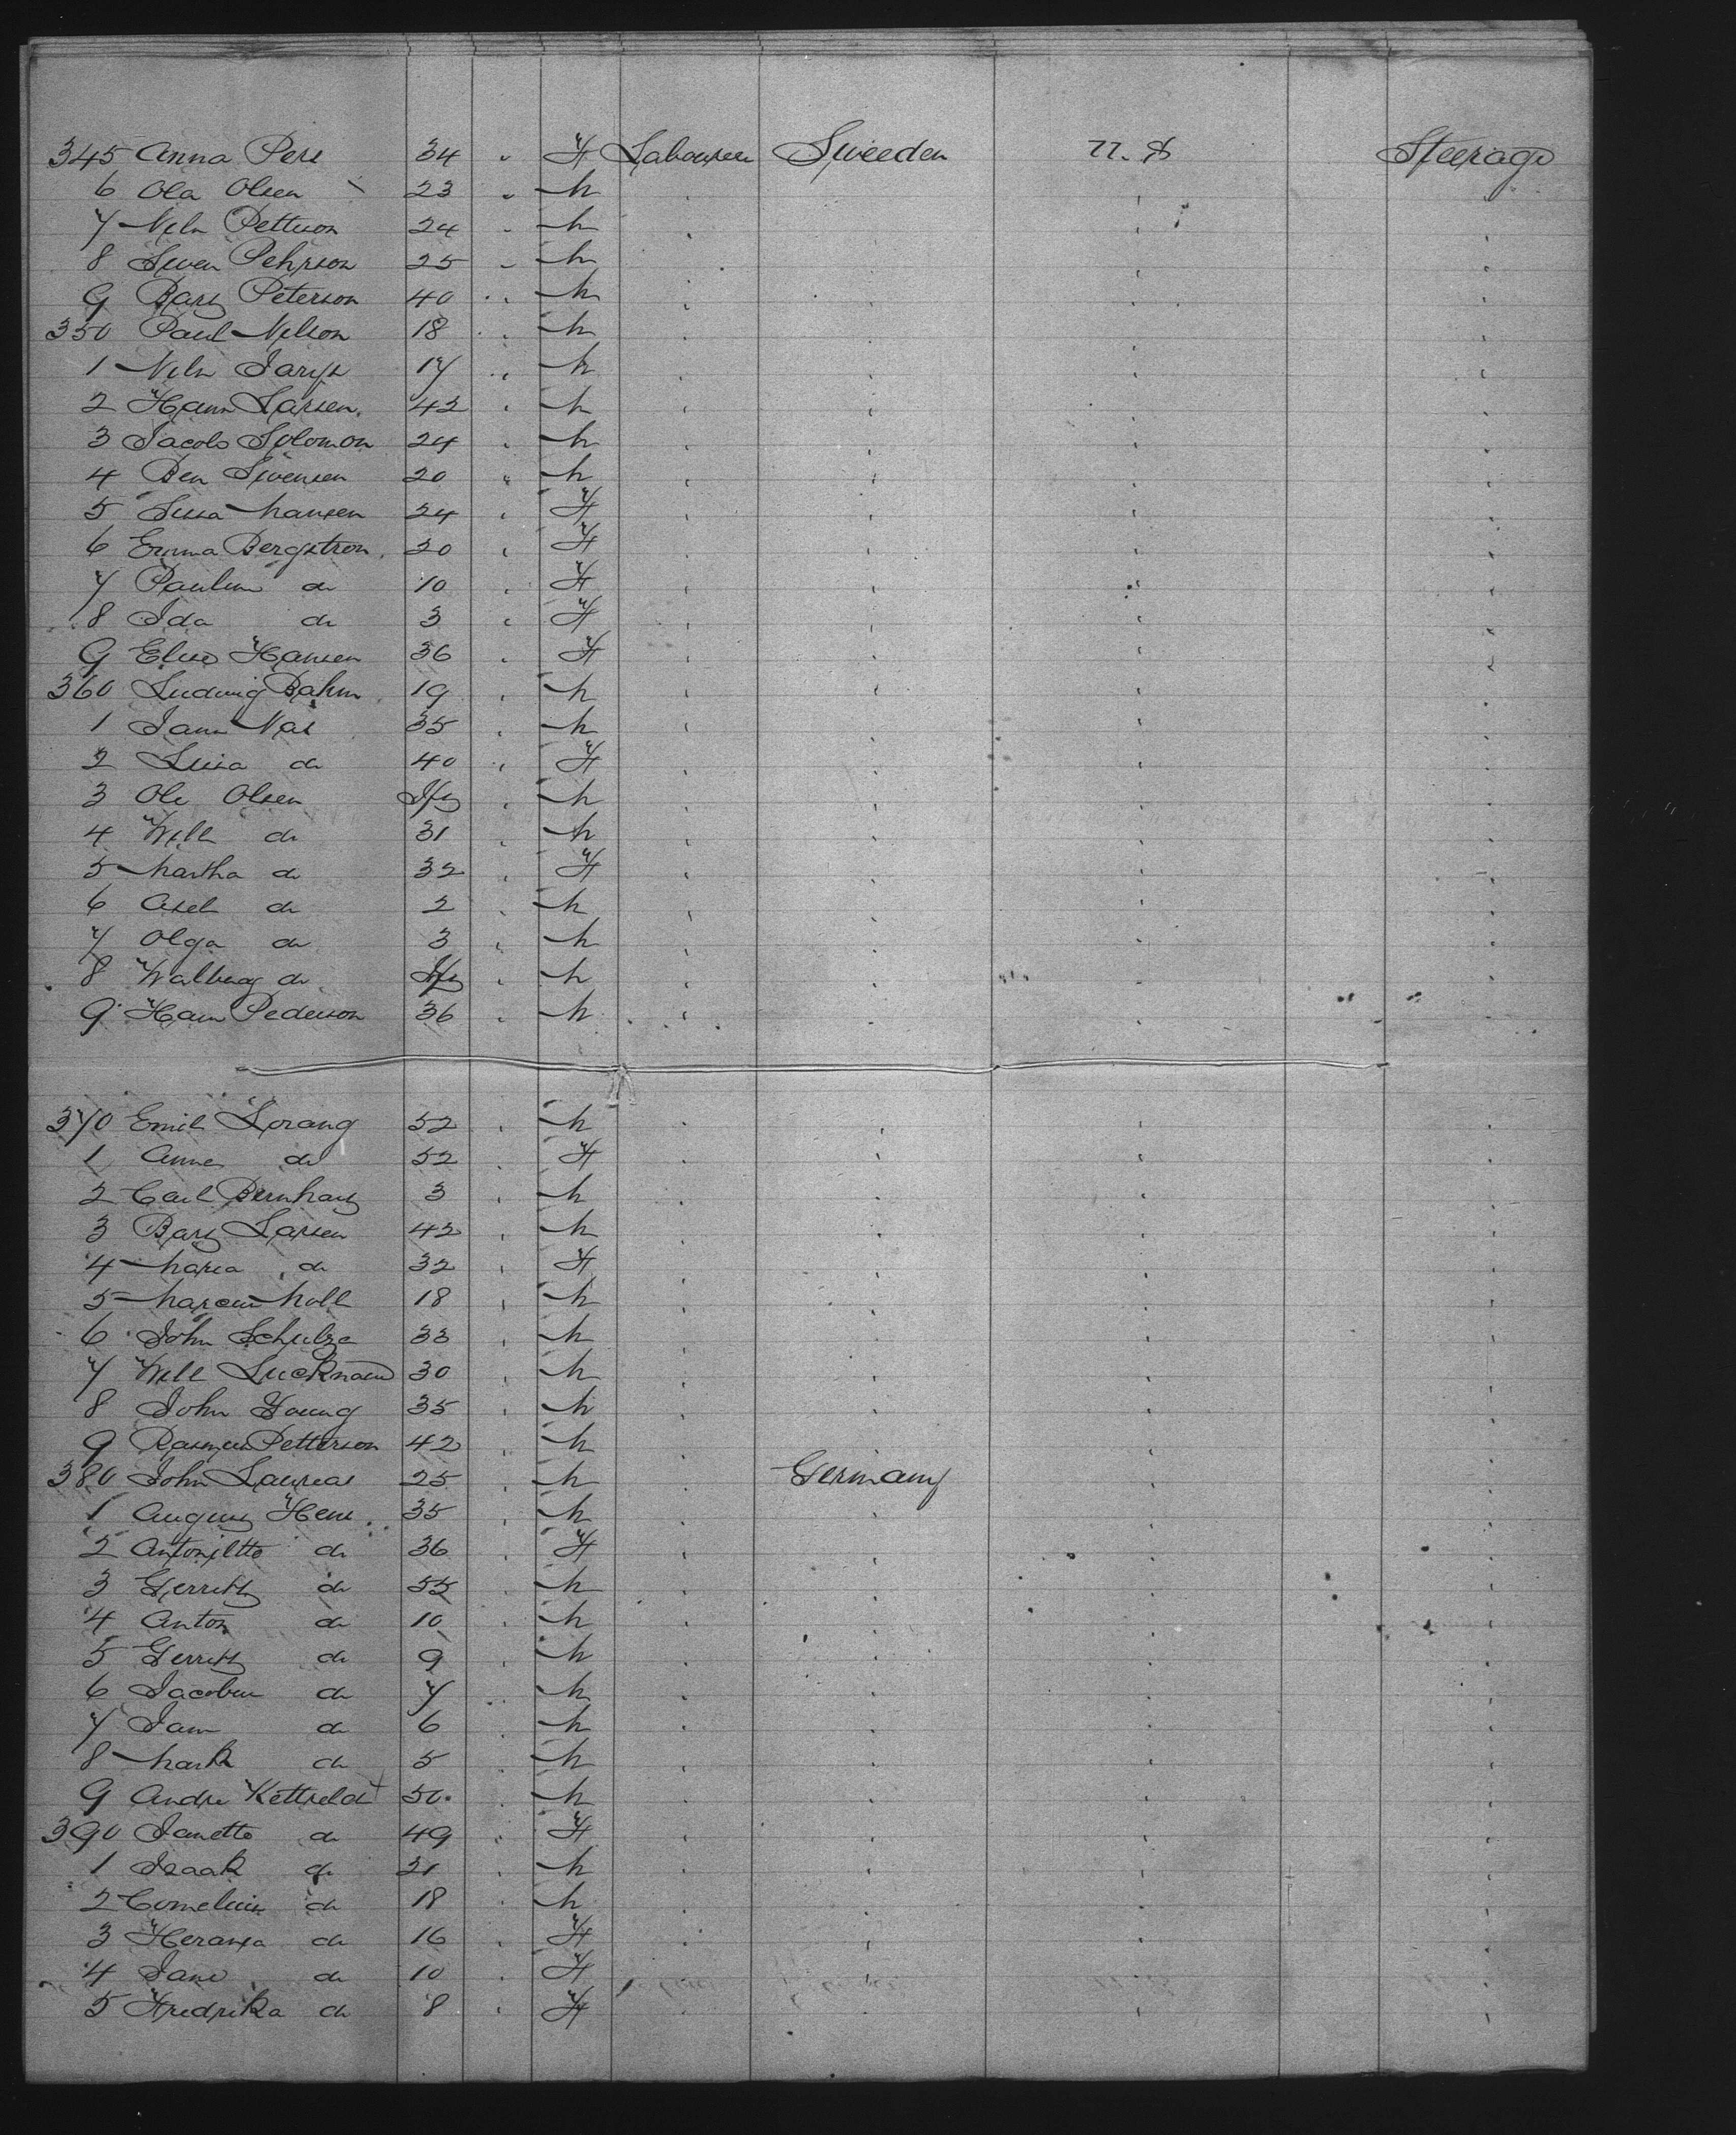 345 Anna Pers 34 " F Labourer Sweeden U.S Steerage
6 Ola Olsen 23 " M " "
7 Nels Petterson 24 " M " "
8 Swen Pehrson 25 " M " "
9 Bary Peterson 40 " M " " " "
350 Paul Nelson 18 " M " " " "
1 Nels 17 " M " " " "
2 Hann Larsen 42 " M " " " "
3 Jacob Solomon 24 " M " " " "
4 Ben Swensen 20 " M " " " "
5 Sissa Hansen 24 " F " " " "
6 Emma Bergstron 20 " F " " " "
7 Paulin do 10 " F " " " "
8 Ida do 3 " F " " " "
9 Elise Hansen 36 " F " " " "
360 Ludwig Bahm 19 " M " " " "
1 35 " M " " " "
2 Luisa do 40 " F " " " "
3 Ole Olsen Ify " M " " " "
4 Will do 31 " M " " " "
5 Martha do 32 " F " " " "
6 Axel do 2 " M " " " "
7 Olga do 3 " M " " " "
8 Walburg do Ify " M " " " "
9 Hans Pederson 36 " M " " " "
370 Emil Lorang 52 " M " " " "
1 Anna do 52 " F " " " "
2 Carl Bernhary 3 " M " " " "
3 Bary Larsen 42 " M " " " "
4 Maria do 32 " F " " " "
5 Moll 18 " M " " " "
6 John Schulze 33 " M " " " "
7 Will 30 " M " " " "
8 John Young 35 " M " " " "
9 Rasmus Petterson 42 " M " " " "
380 John Laureas 25 " M " Germany " "
1 August Hens 35 " M " " " "
2 Antonette do 36 " F " " " "
3 Gerrith do 55 " M " " " "
4 Anton do 10 " M " " " "
5 Gerrith do 9 " M " " " "
6 Jacobus do 7 " M " " " "
7 Jann do 6 " M " " " "
8 Mark do 5 " M " " " "
9 Andre Kettseldt 50 " M " " " "
390 Janette do 49 " F " " " "
1 Isaak do 21 " M " " " "
2 Cornelius do 18 " M " " " "
3 do 16 " F " " " "
4 Jane do 10 " F " " " "
5 Fredrika do 8 " F " " " "